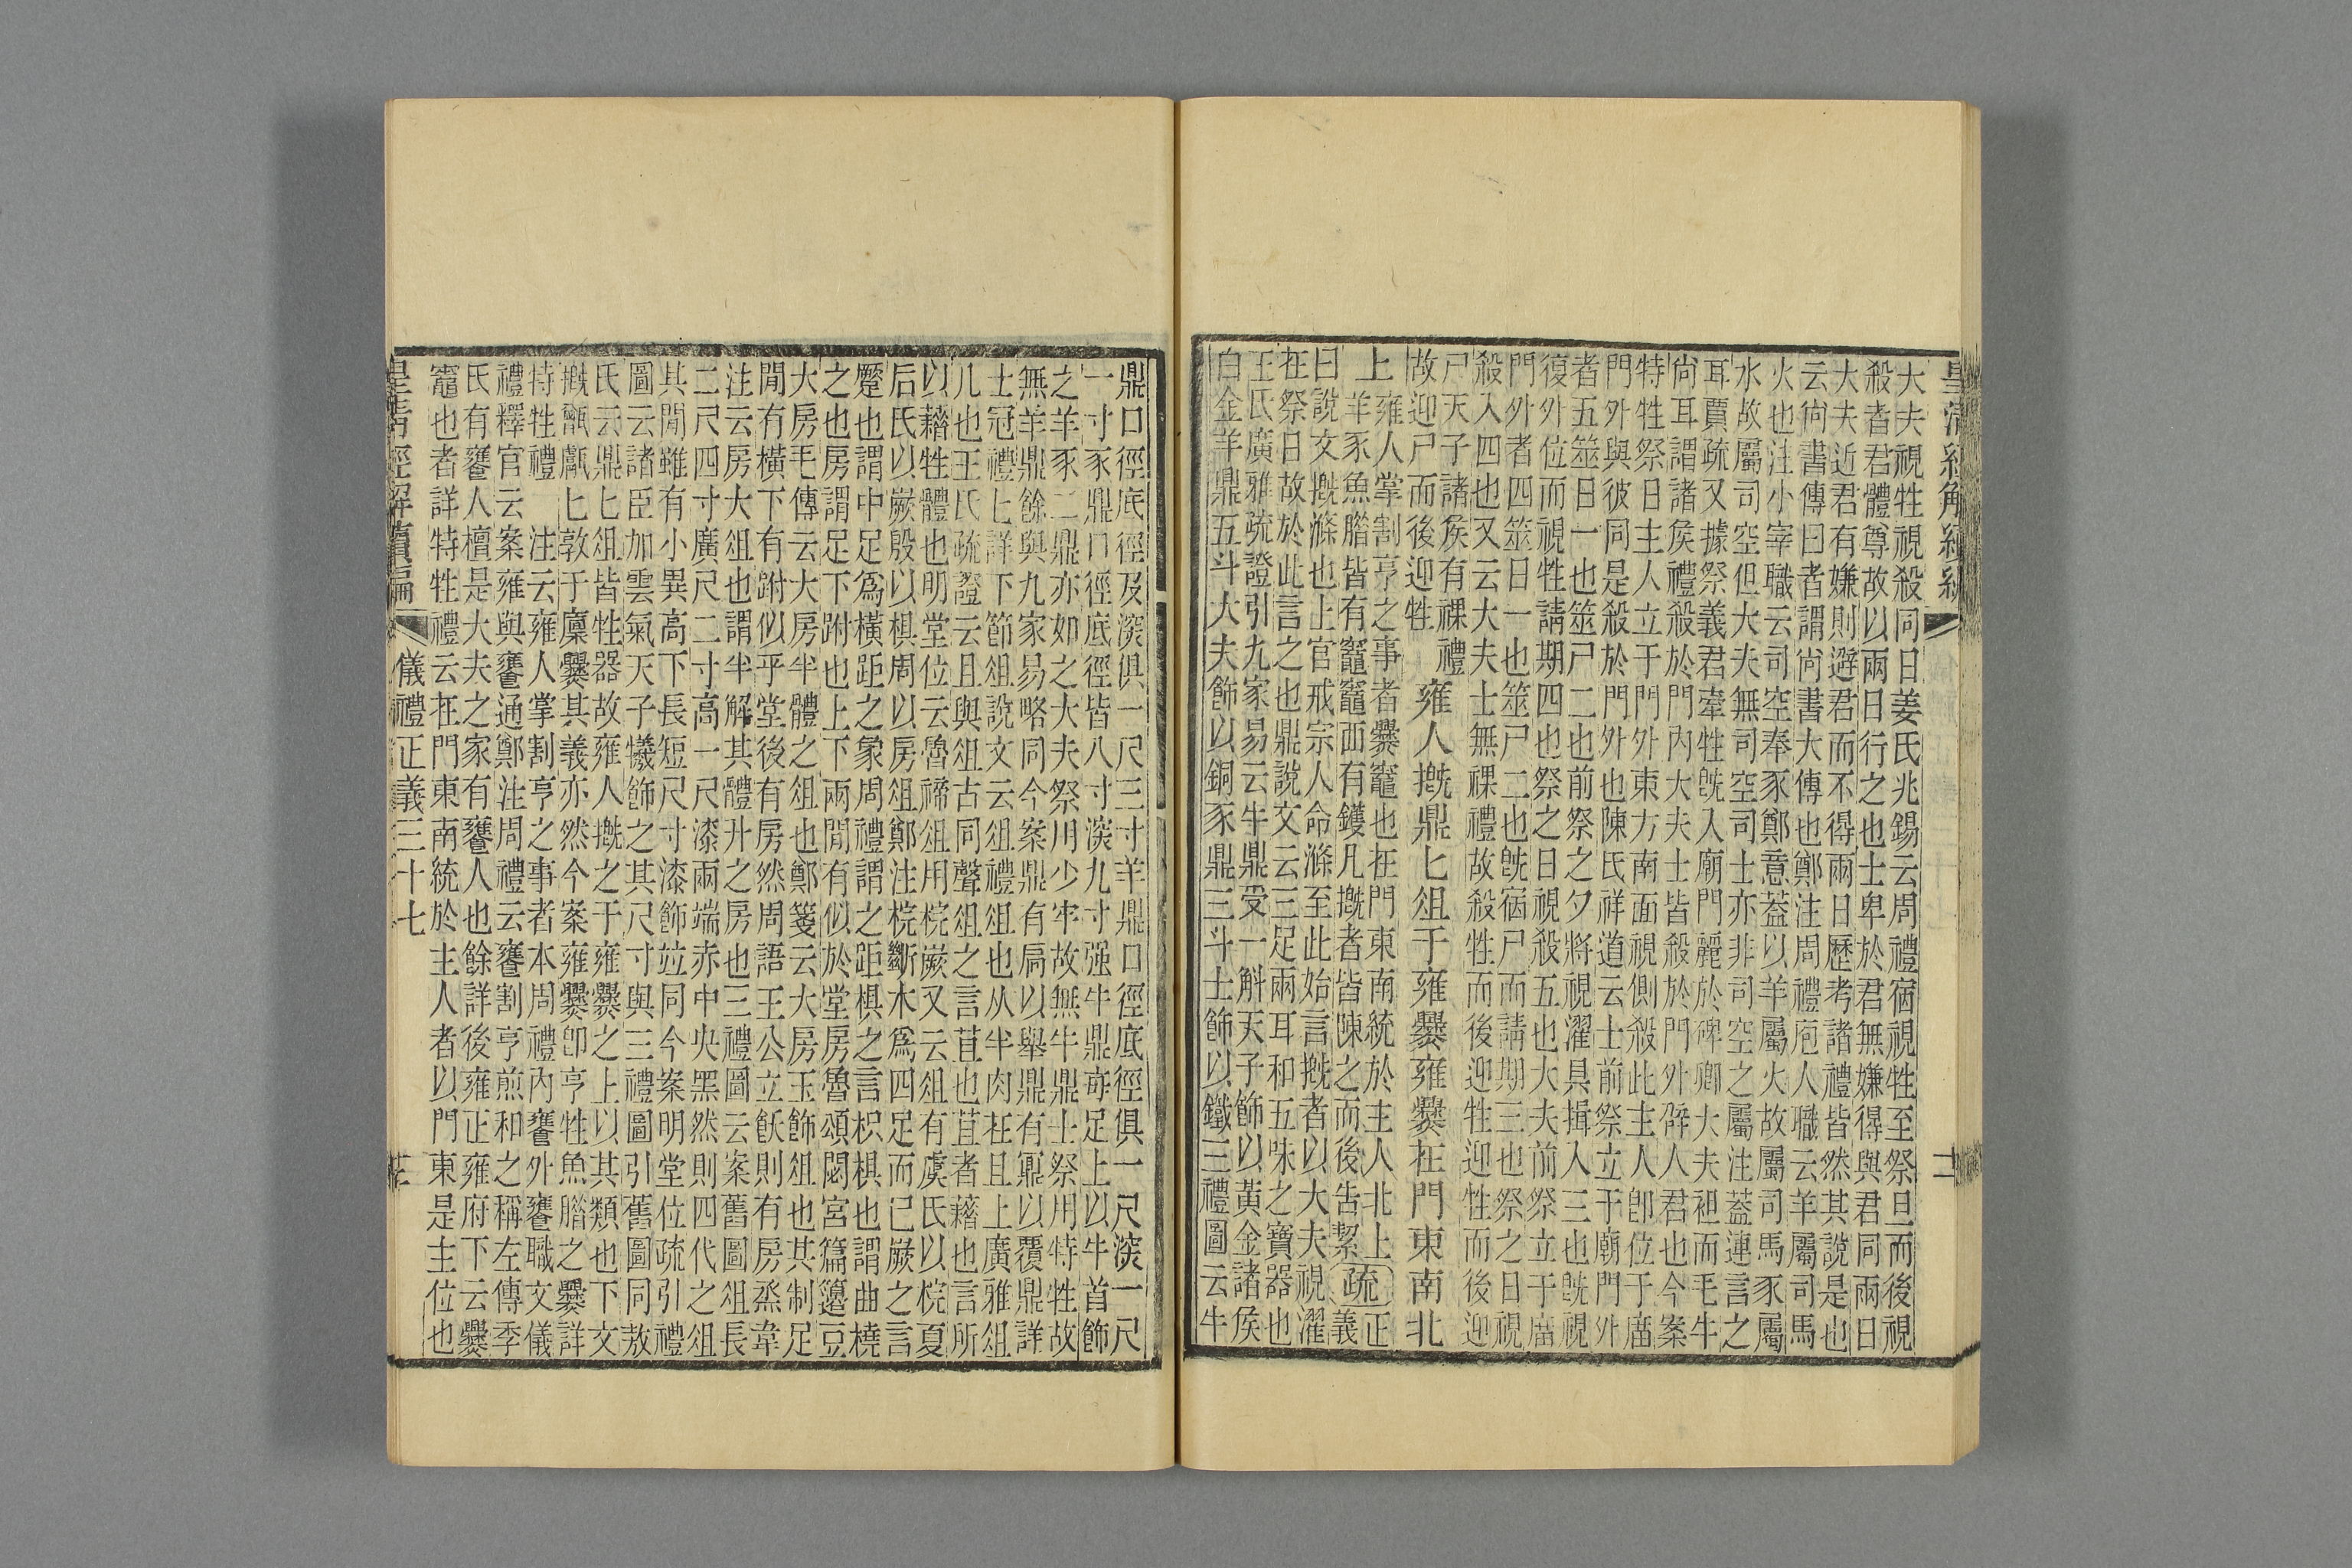 皇清經解續編
大夫視牲視殺同日姜氏兆錫云周禮宿視牲至祭旦而後視
殺者君體尊故以兩日行之也士卑於君無嫌得與君同兩日
大夫近君有嫌則避君而不得兩日歷考諸禮皆然其說是也
云尙書傳曰者謂尙書大傳也鄭注周禮庖人職云羊屬司馬
火也注小宰職云司空奉豕鄭意蓋以羊屬火故屬司馬豕屬
水故屬司空但大夫無司空司士亦非司空之屬注蓋連言之
耳賈疏又據祭義君牽牲旣入廟門麗於碑卿大夫袒而毛牛
尙耳謂諸侯禮殺於門內大夫士皆殺於門外辟人君也今案
特牲祭日主人立于門外東方南面視側殺此主人卽位于廟
門外與彼同是殺於門外也陳氏祥道云士前祭立于廟門外
者五筮日一也筮尸二也前祭之夕將視濯具揖入三也旣視
復外位而視牲請期四也祭之日視殺五也大夫前祭立于廟
門外者四筮日一也筮尸二也旣宿尸而請期三也祭之日視
殺入四也又云大夫士無祼禮故殺牲而後迎牲迎牲而後迎
尸天子諸侯有祼禮
故迎尸而後迎牲
雍人摡鼎匕俎于雍爨雍爨在門東南北
上雍人掌割亨之事者爨竈也在門東南統於主人北上
羊豕魚腊皆有竈竈西有鑊凡摡者皆陳之而後告絜疏正義
曰說文摡滌也上官戒宗人命滌至此始言摡者以大夫視濯
在祭日故於此言之也鼎說文云三足兩耳和五味之寶器也
王氏廣雅疏證引九家易云牛鼎受一斛天子飾以黃金諸侯
白金羊鼎五斗大夫飾以銅豕鼎三斗士飾以鐵三禮圖云牛
鼎口徑底徑及深俱一尺三寸羊鼎口徑底徑俱一尺深一尺
一寸豕鼎口徑底徑皆八寸深九寸强牛鼎每足上以牛首飾
之羊豕二鼎亦如之大夫祭用少牢故無牛鼎士祭用特牲故
無羊鼎餘與九家易略同今案鼎有扃以舉鼎有鼏以覆鼎詳
士冠禮匕詳下節俎說文云俎禮俎也从半肉在且上廣雅俎
几也王氏疏證云且與俎古同聲俎之言苴也苴者藉也言所
以藉牲體也明堂位云魯禘俎用梡嶡又云俎有虞氏以梡夏
后氏以嶡殷以椇周以房俎鄭注梡斷木爲四足而已嶡之言
蹷也謂中足爲橫距之象周禮謂之距椇之言枳椇也謂曲橈
之也房謂足下跗也上下兩閒有似於堂房魯頌閟宮篇籩豆
大房毛傳云大房半體之俎也鄭箋云大房玉飾俎也其制足
閒有橫下有跗似乎堂後有房然周語王公立飫則有房烝韋
注云房大俎也謂半解其體升之房也三禮圖云案舊圖俎長
二尺四寸廣尺二寸高一尺漆兩端赤中央黑然則四代之俎
其閒雖有小異高下長短尺寸漆飾竝同今案明堂位疏引禮
圖云諸臣加雲氣天子犧飾之其尺寸與三禮圖引舊圖同敖
氏云鼎匕俎皆牲器故雍人摡之于雍爨之上以其類也下文
摡甑甗匕敦于廩爨其義亦然今案雍爨卽亨牲魚腊之爨詳
特牲禮 注云雍人掌割亨之事者本周禮內饔外饔職文儀
禮釋官云案雍與饔通鄭注周禮云饔割亨煎和之稱左傳季
氏有饔人檀是大夫之家有饔人也餘詳後雍正雍府下云爨
竈也者詳特牲禮云在門東南統於主人者以門東是主位也
皇清經解續編
儀禮正義三十七